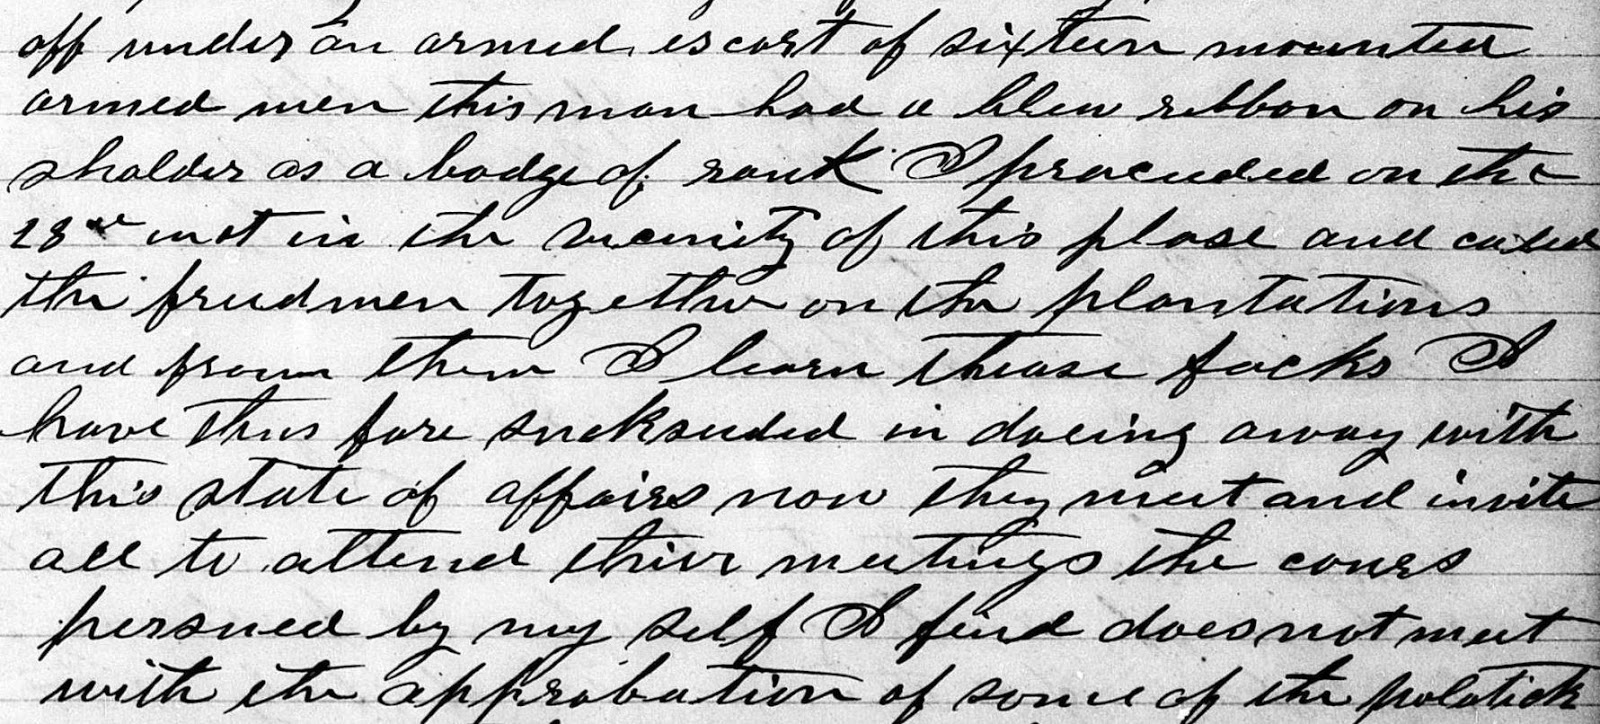 off under an armed escort of sixteen mounted
armed men this man had a blew ribbon on his
sholder as a badge of rank I proceeded on the
28 inst in the vicenity of this plase and caled
the freedmen together on the plantations
and from them I learn thease facks I
have thus fare suckseeded in doeing away with
this state of affairs now they meet and invite
all to attend thier meetings the cours
persued by my self I find does not meet
with the approbation of some of the polatick